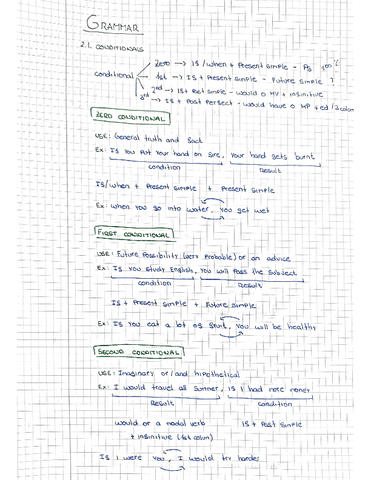 GRAMMAR
2.1. CONDITIONALS
Zero → If/when + Present simple - PS
conditional 1st → If + Present simple - Future simple
2nd → If + Past simple - would o MV + infinitive
3rd → If + Past Perfect - would have o MP + ed/3 colon
ZERO CONDITIONAL
USE: General truth and fact
Ex: If you put your hand on fire, your hand gets burnt
condition Result
If/when + Present simple + Present simple
Ex: when you go into water, you get wet
FIRST CONDITIONAL
USE: Future Possibility (very Probable) or an advice
Ex: If you study English, you will pass the subject
condition Result
If + Present simple + Future simple
Ex: If you eat a lot of fruit, you will be healthy
SECOND CONDITIONAL
USE: Imaginary or/and hipothetical
Ex: I would travel all summer, if I had more money
Result condition
would or a modal verb If + Past simple
+ infinitive (1st colum)
If I were you, I would try harder